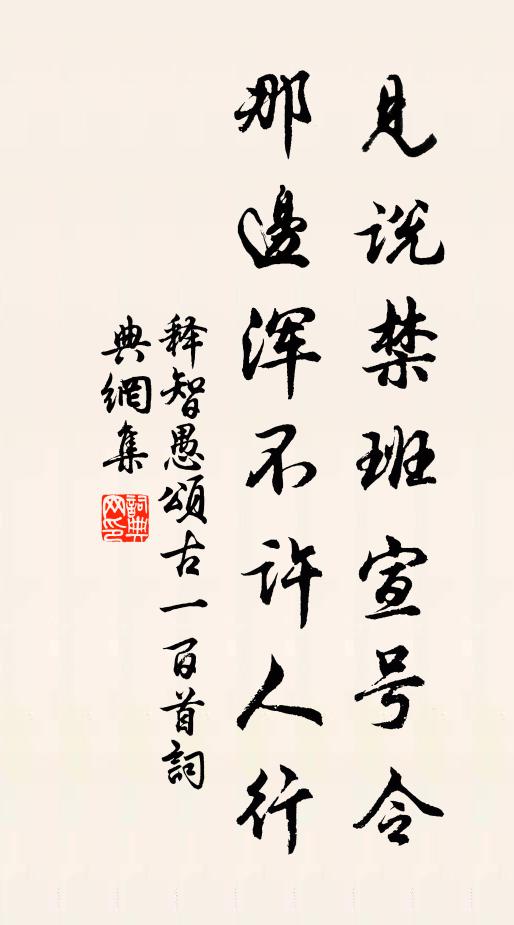 見説禁班宣号令
那邊渾不許人行
释智愚頌古一百首詞
典網集
詞典網印